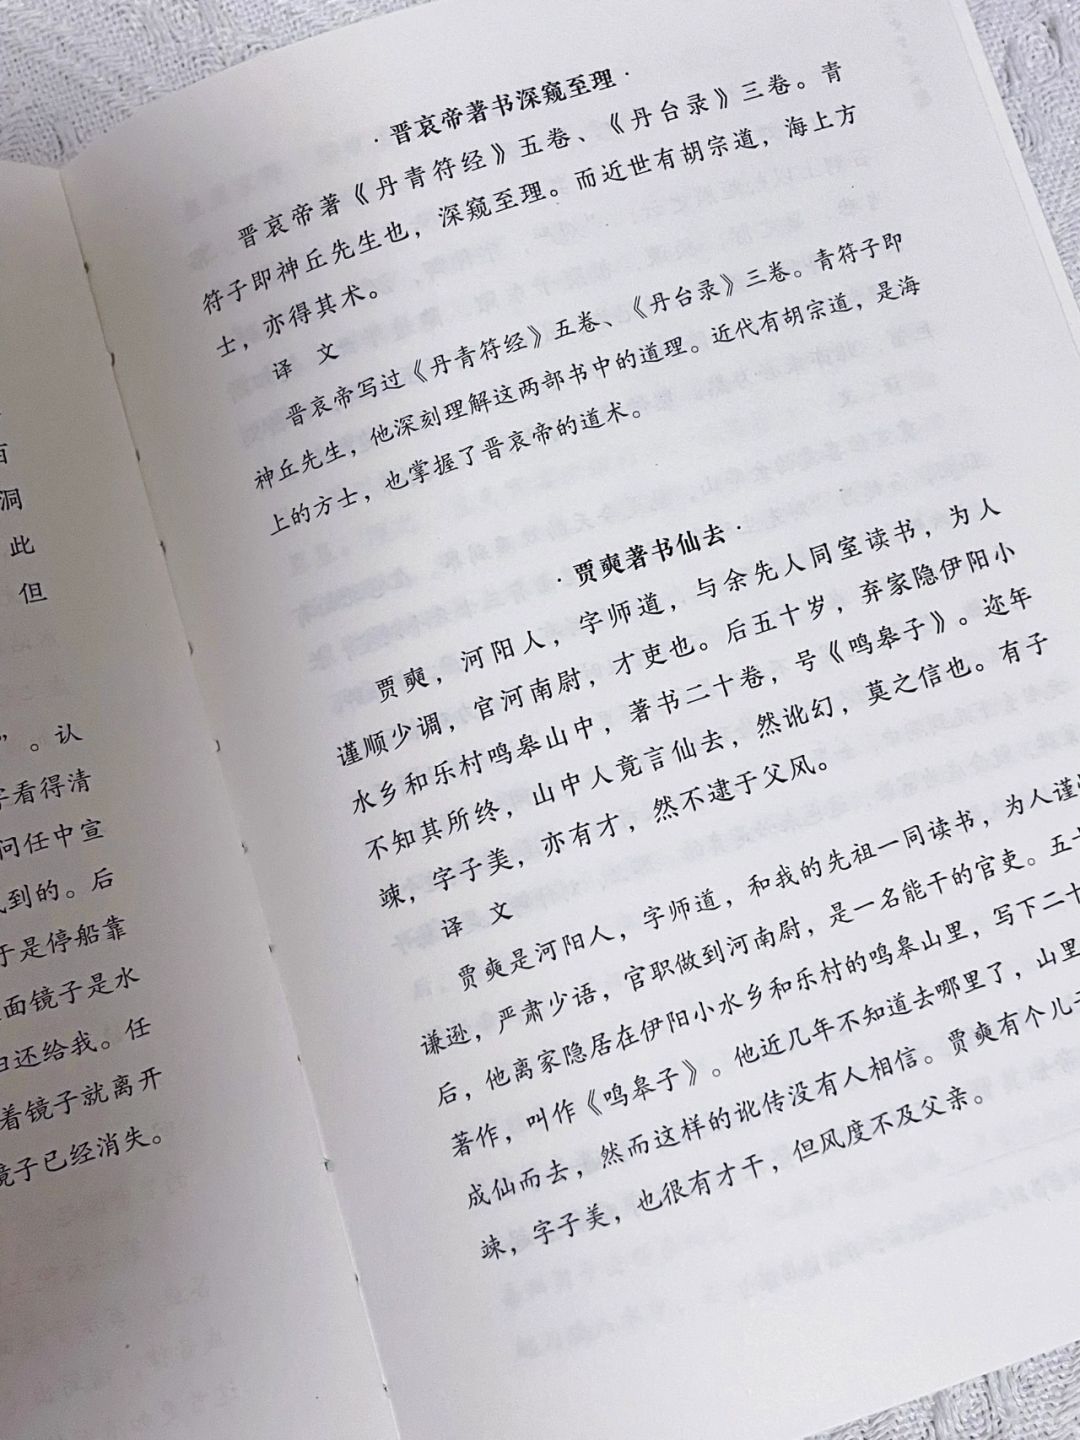 百
洞
此
但
”。认
字看得清
问任中宣
到的。后
于是停船靠
面镜子是水
归还给我。任
着镜子就离开
镜子已经消失。
·晋哀帝著书深窥至理·
晋哀帝著《丹青符经》五卷、《丹台录》三卷。青
符子即神丘先生也，深窥至理。而近世有胡宗道，海上方
士，亦得其术。
译 文
晋哀帝写过《丹青符经》五卷、《丹台录》三卷。青符子即
神丘先生，他深刻理解这两部书中的道理。近代有胡宗道，是海
上的方士，也掌握了晋哀帝的道术。
·贾奭著书仙去·
贾奭，河阳人，字师道，与余先人同室读书，为人
谨顺少调，官河南尉，才吏也。后五十岁，弃家隐伊阳小
水乡和乐村鸣皋山中，著书二十卷，号《鸣皋子》。迩年
不知其所终，山中人竟言仙去，然讹幻，莫之信也。有子
竦，字子美，亦有才，然不逮于父风。
译 文
贾奭是河阳人，字师道，和我的先祖一同读书，为人谨
谦逊，严肃少语，官职做到河南尉，是一名能干的官吏。五十
后，他离家隐居在伊阳小水乡和乐村的鸣皋山里，写下二十
著作，叫作《鸣皋子》。他近几年不知道去哪里了，山里
成仙而去，然而这样的讹传没有人相信。贾奭有个儿子
竦，字子美，也很有才干，但风度不及父亲。